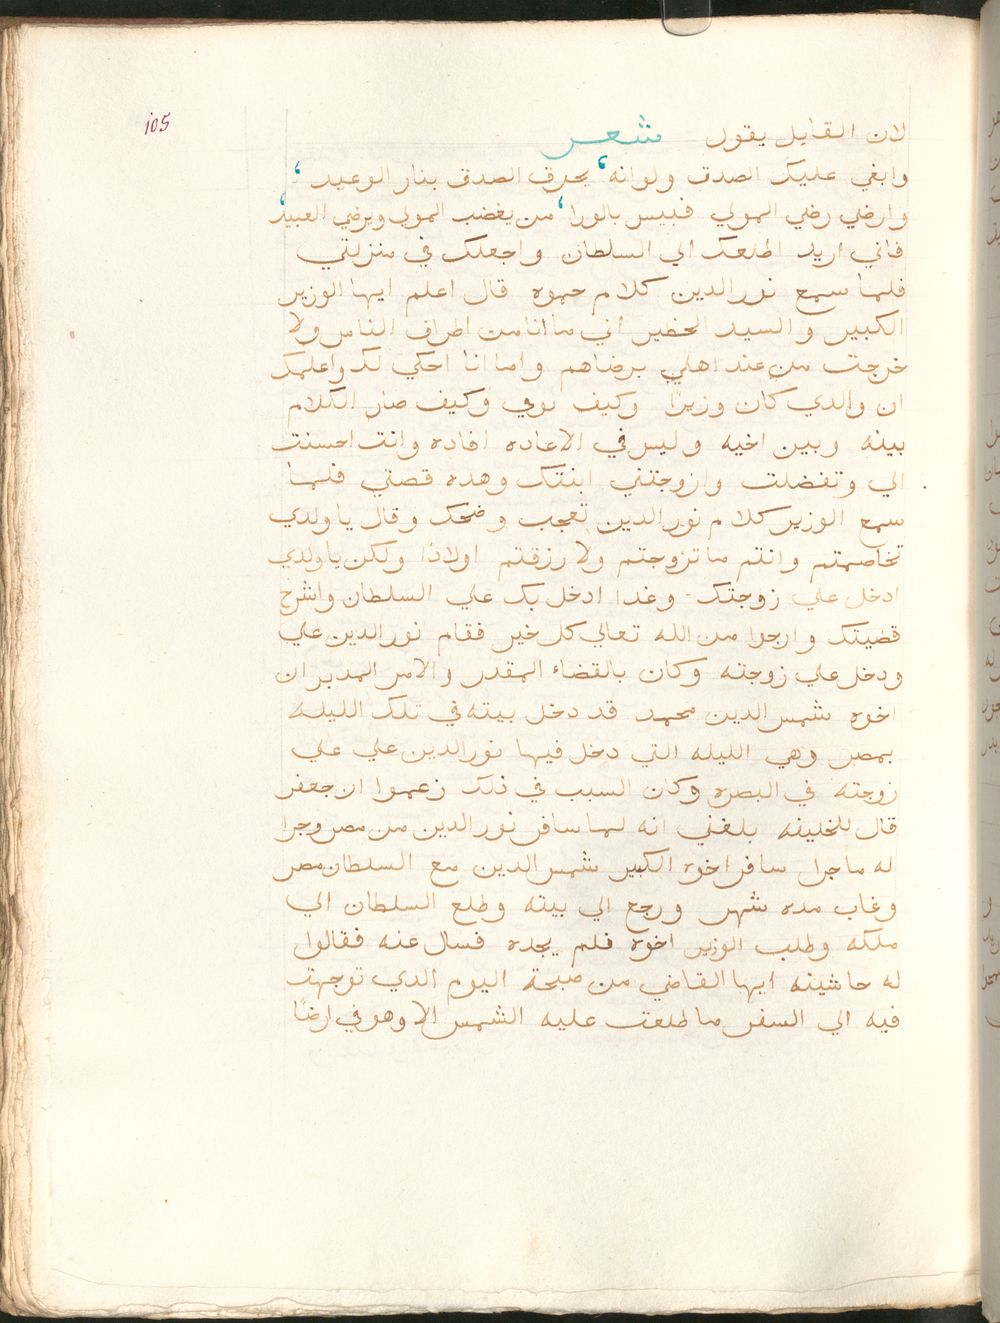 105
لان القايل يقول شعر
وابغي عليك الصدق ولوانه، يحرق الصدق بنار الوعيد،
وارضي رضي المولي فبيس بالورا، من يغضب المولي ويرضي العبيد،
فاني اريد اطلعك الي السلطان واجعلك في منزلتي
فلما سمع نور الدين كلام حموه قال اعلم ايها الوزير
الكبير والسيد الخضير اني ما انا من اطراف الناس ولا
خرجت من عند اهلي برضاهم واما انا احكي لك واعلمك
ان والدي كان وزيرا وكيف توفي وكيف صار الكلام
بينه وبين اخيه وليس في الاعاده افاده وانت احسنت
الي وتفضلت وازوجتني ابنتك وهده قصتي فلما
سمع الوزير كلام نور الدين تعجب وضحك وقال يا ولدي
تخاصمتم وانتم ما تزوجتم ولا رزقتم اولادًا ولكن يا ولدي
ادخل علي زوجتك وغدا ادخل بك علي السلطان واشرح
قضيتك وارجوا من الله تعالي كل خير فقام نور الدين علي
ودخل علي زوجته وكان بالقضاء المقدر والامر المدبر ان
اخوه شمس الدين محمد قد دخل بيته في تلك الليله
بمصر وهي الليله التي دخل فيها نور الدين علي علي
زوجته في البصره وكان السبب في ذلك زعموا ان جعفر
قال للخليفه بلغني انه لما سافر نور الدين من مصر وجرا
له ما جرا سافر اخوه الكبير شمس الدين مع السلطان مصر
وغاب مده شهر ورجع الي بيته وطلع السلطان الي
ملكه وطلب الوزير اخوه فلم يجده فسال عنه فقالوا
له حاشيته ايها القاضي من صبحة اليوم الدي توجهت
فيه الي السفر ما طلعت عليه الشمس الا وهو في ارضًا